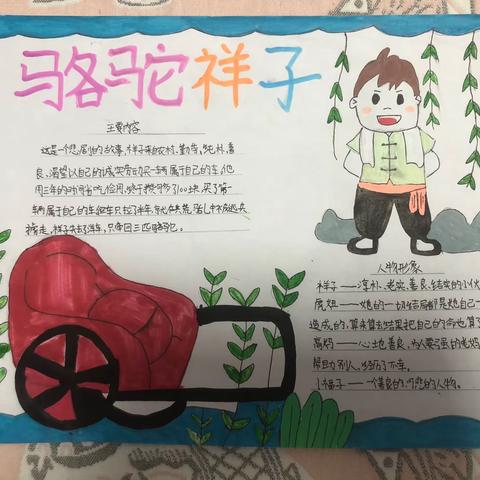 骆驼祥子
主要内容
这是一个悲剧的故事,祥子来自农村,勤劳,纯朴,善
良,渴望以自己的诚实劳动买一辆属于自己的车,他
用三年的时间省吃俭用,终于攒够了100块,买了第一
辆属于自己的车但车只拉了半年,
走,祥子失去了洋车,只带回三匹骆驼。
人物形象
祥子——淳朴、老实、善良、结实的小伙
虎妞——她的一切结局都是她自己一
造成的,算来算去结果把自己的命也算了
高妈——心地善良,为人要强的老妈
帮助别人,
小福子——一个善良的,可悲的人物。